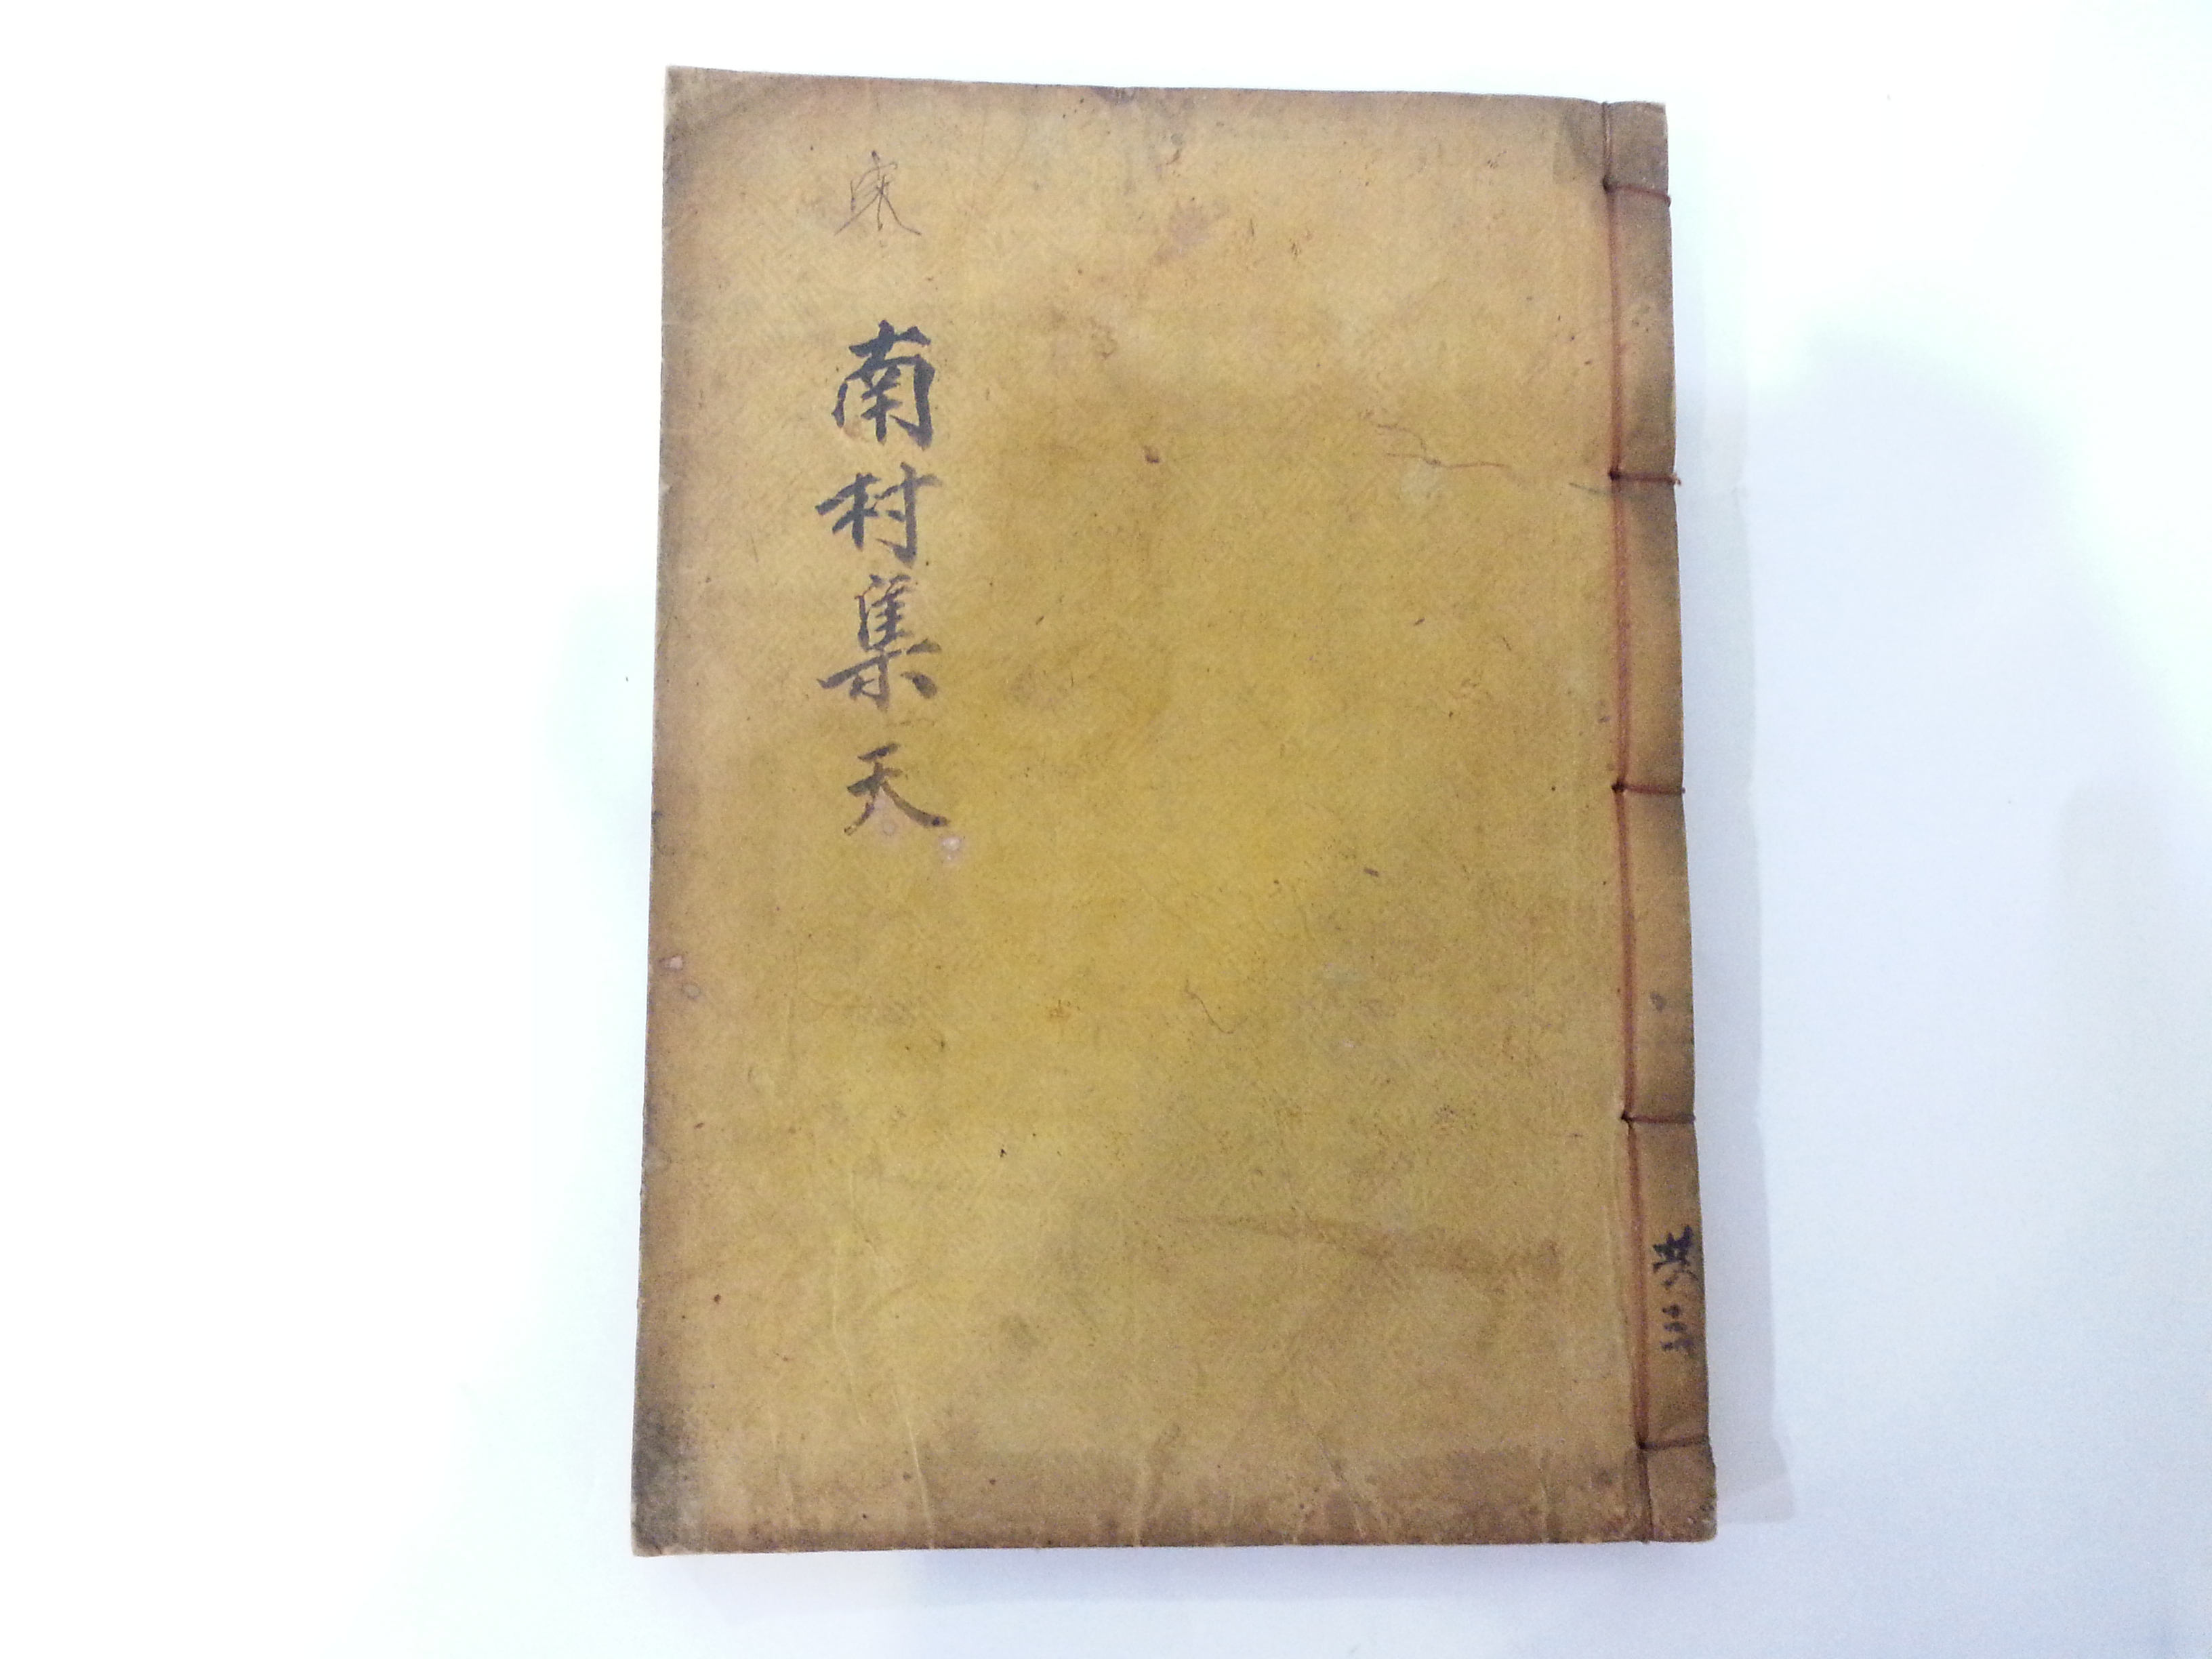 南村集 天
共三